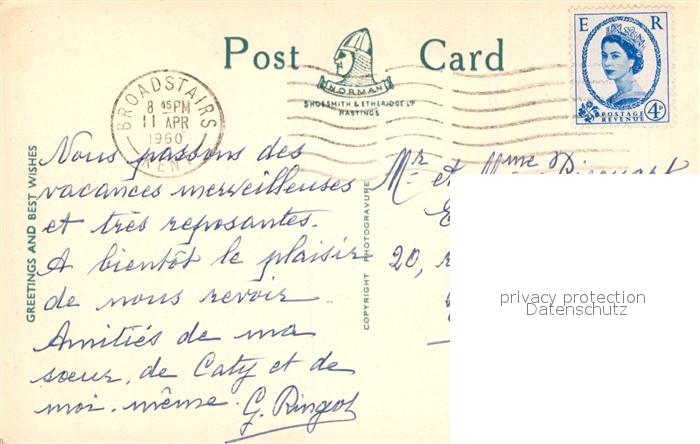 Post Card
NORMAN
SHOESMITH & ETHERIDGE LTD
HASTINGS
E R
4D
POSTAGE
REVENUE
BROADSTAIRS
8 45 PM
11 APR
1960
KENT
GREETINGS AND BEST WISHES
COPYRIGHT PHOTOGRAVURE
Nous passons des
vacances merveilleuses
et très reposantes.
A bientôt le plaisir
de nous revoir
Amitiés de ma
sœur, de Caty et de
moi-même. G. Ringot
Mr et Mme
20,
privacy protection
Datenschutz